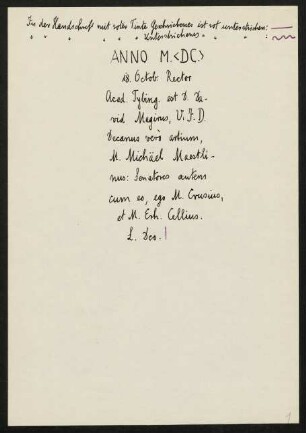 In der Handschrift mit roter Tinte Geschriebenes ist rot unterstrichen:
" " " " " " Unterstrichenes " "
ANNO M.<DC.>
18. Octob. Rector
Acad. Tybing. est D. Da-
vid Magirus, V. J. D.
Decanus verò artium,
M. Michäel Maestli-
nus: Senatores autem
cum eo, ego M. Crusius,
et M. Erh. Cellius.
L. Deo.
1